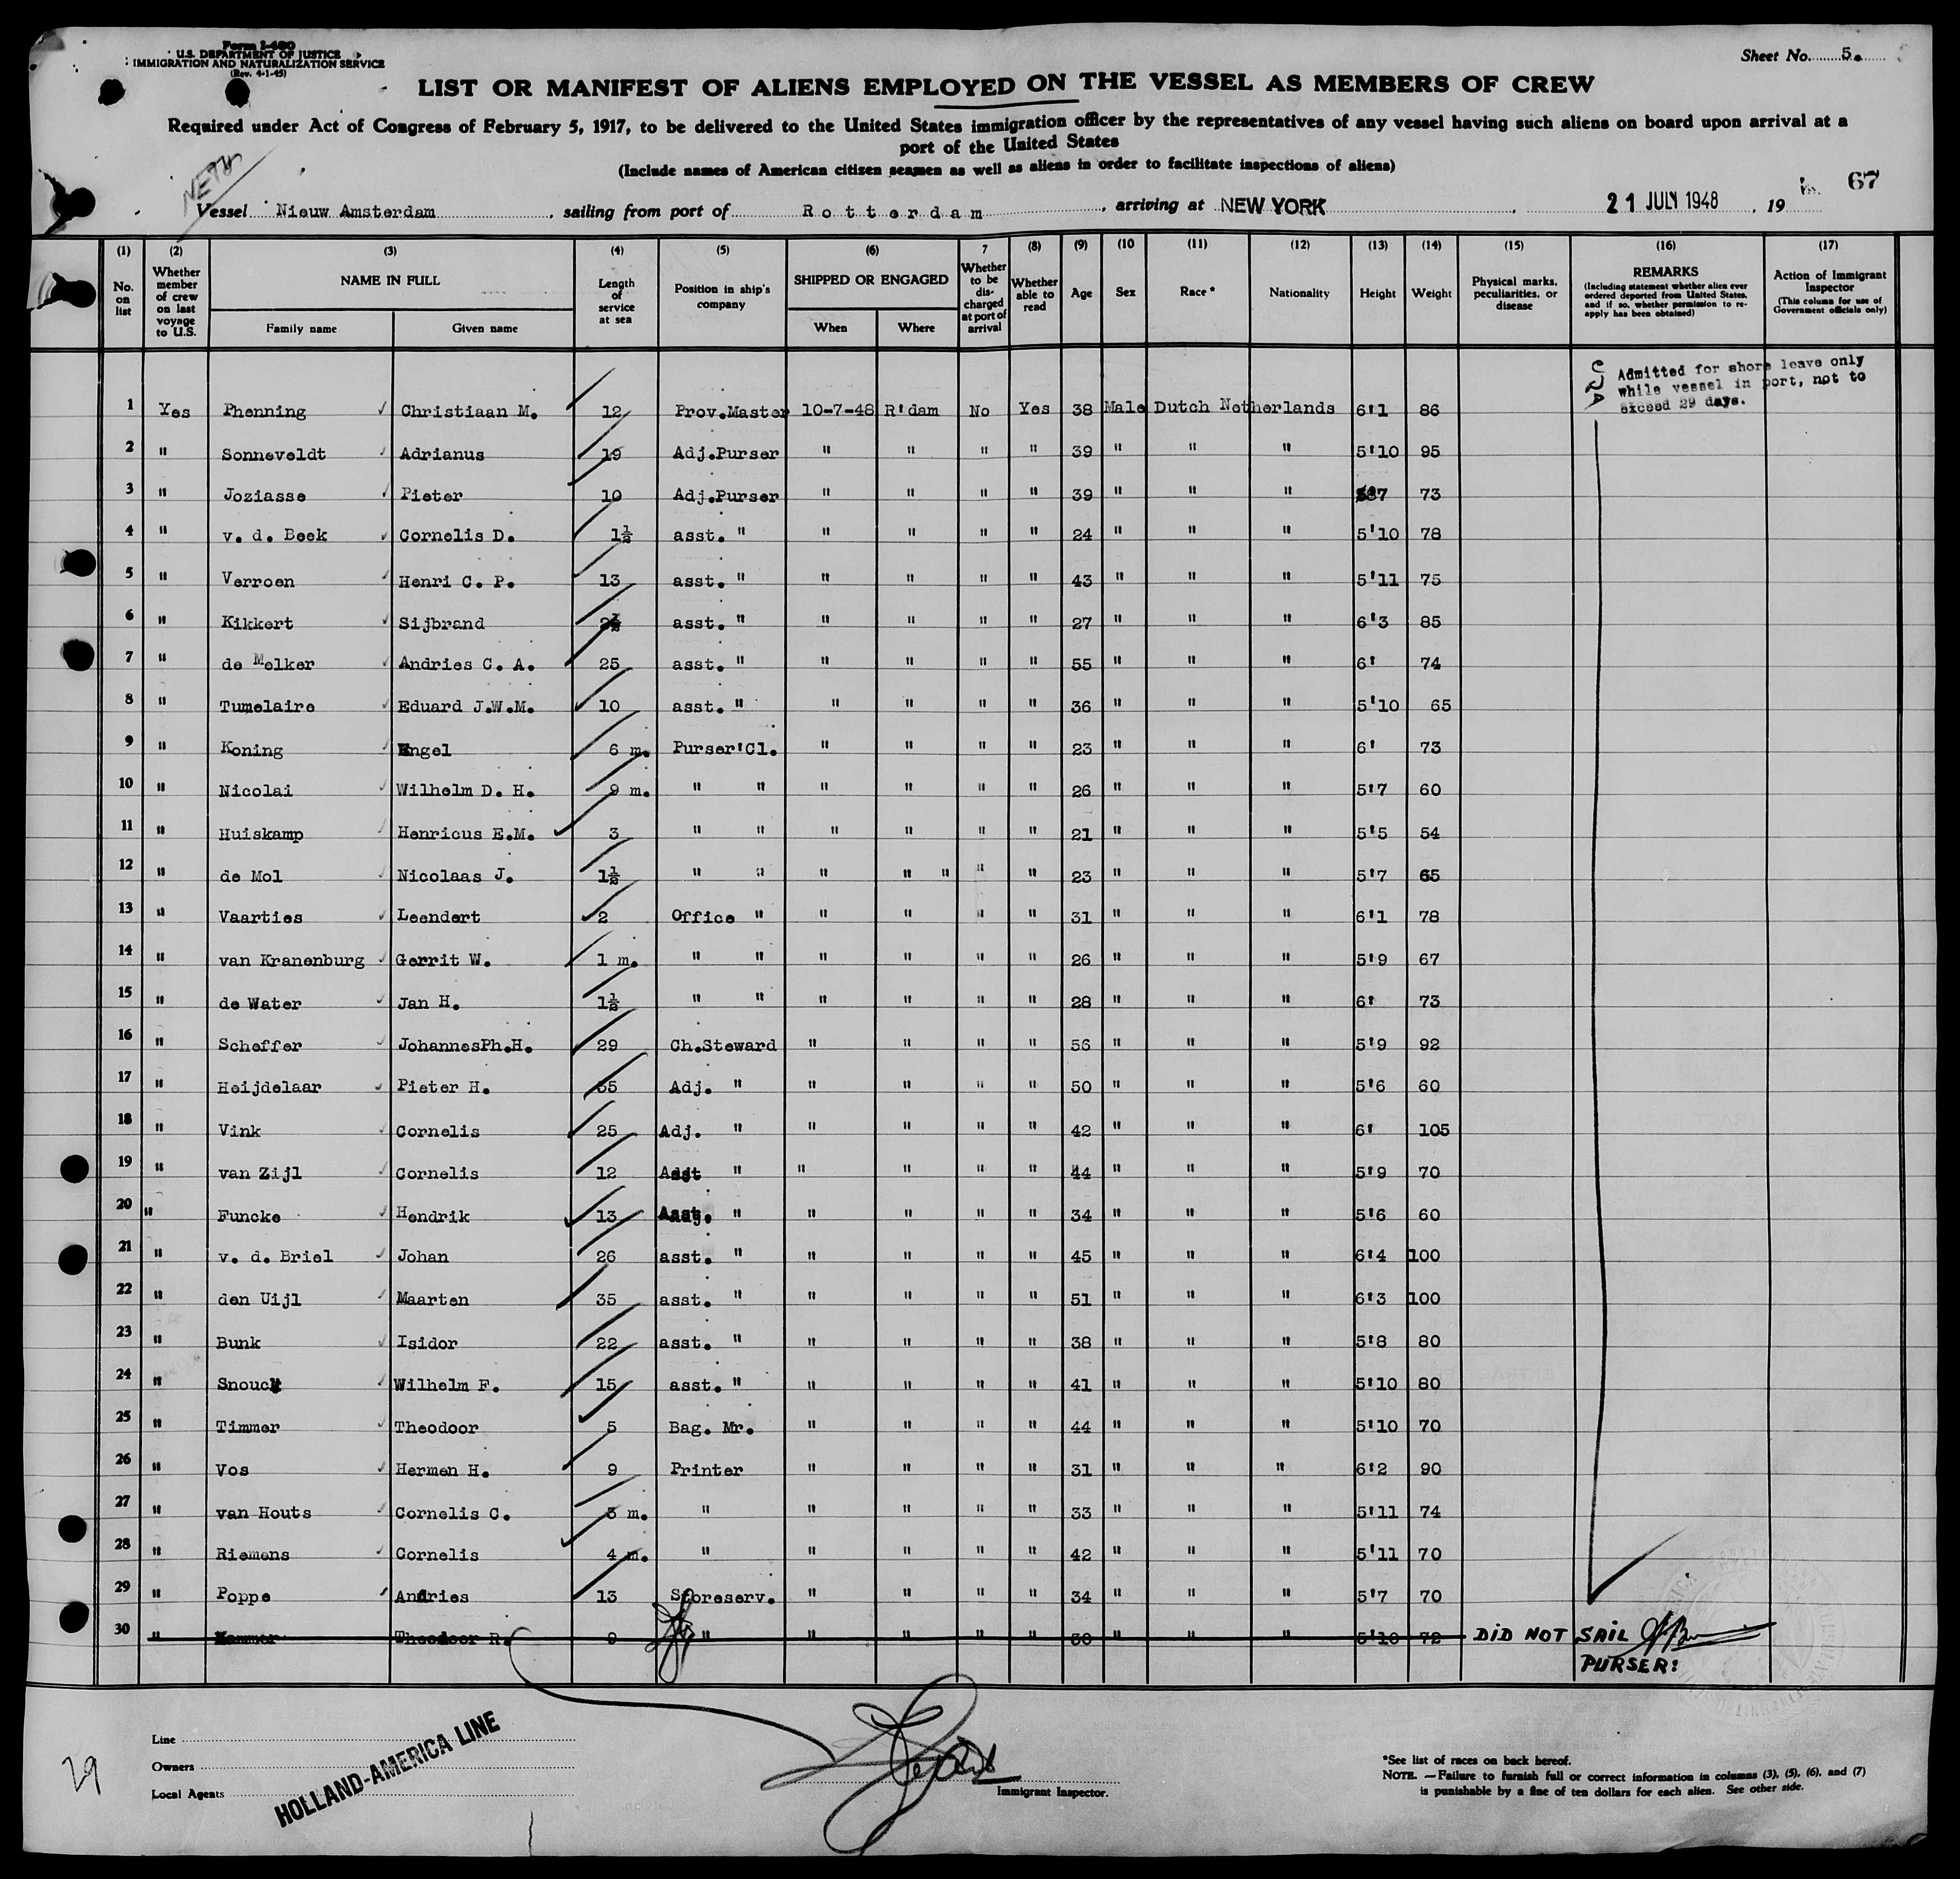 Form I-480
U.S. DEPARTMENT OF JUSTICE
IMMIGRATION AND NATURALIZATION SERVICE
(Rev. 4-1-45)
Sheet No. 5.
LIST OR MANIFEST OF ALIENS EMPLOYED ON THE VESSEL AS MEMBERS OF CREW
Required under Act of Congress of February 5, 1917, to be delivered to the United States immigration officer by the representatives of any vessel having such aliens on board upon arrival at a
port of the United States
(Include names of American citizen seamen as well as aliens in order to facilitate inspections of aliens)
NETH
67
Vessel Nieuw Amsterdam, sailing from port of Rotterdam, arriving at NEW YORK, 21 JULY 1948, 19
(1) (2) (3) (4) (5) (6) 7 (8) (9) (10 (11) (12) (13) (14) (15) (16) (17)
No. on list
Whether member of crew on last voyage to U.S.
NAME IN FULL
Family name Given name
Length of service at sea
Position in ship's company
SHIPPED OR ENGAGED
When Where
Whether to be discharged at port of arrival
Whether able to read
Age Sex Race* Nationality Height Weight
Physical marks, peculiarities, or disease
REMARKS
(Including statement whether alien ever ordered deported from United States, and if so, whether permission to re-apply has been obtained)
Action of Immigrant Inspector
(This column for use of Government officials only)
Admitted for shore leave only
while vessel in port, not to
exceed 29 days.
1 Yes Phenning Christiaan M. 12 Prov.Master 10-7-48 R'dam No Yes 38 Male Dutch Netherlands 6'1 86
2 " Sonneveldt Adrianus 19 Adj.Purser " " " " 39 " " " 5'10 95
3 " Joziasse Pieter 10 Adj.Purser " " " " 39 " " " 5'7 73
4 " v. d. Beek Cornelis D. 1½ asst. " " " " " 24 " " " 5'10 78
5 " Verroen Henri C. P. 13 asst. " " " " " 43 " " " 5'11 75
6 " Kikkert Sijbrand asst. " " " " " 27 " " " 6'3 85
7 " de Melker Andries C. A. 25 asst. " " " " " 55 " " " 6' 74
8 " Tumelaire Eduard J.W.M. 10 asst. " " " " " 36 " " " 5'10 65
9 " Koning Engel 6 m. Purser'Cl. " " " " 23 " " " 6' 73
10 " Nicolai Wilhelm D. H. 9 m. " " " " " " 26 " " " 5'7 60
11 " Huiskamp Henricus E.M. 3 " " " " " " 21 " " " 5'5 54
12 " de Mol Nicolaas J. 1½ " " " " " " " 23 " " " 5'7 65
13 " Vaarties Leendert 2 Office " " " " " 31 " " " 6'1 78
14 " van Kranenburg Gerrit W. 1 m. " " " " " " 26 " " " 5'9 67
15 " de Water Jan H. 1½ " " " " " " 28 " " " 6' 73
16 " Scheffer JohannesPh.H. 29 Ch.Steward " " " " 56 " " " 5'9 92
17 " Heijdelaar Pieter H. 35 Adj. " " " " " 50 " " " 5'6 60
18 " Vink Cornelis 25 Adj. " " " " " 42 " " " 6' 105
19 " van Zijl Cornelis 12 Asst " " " " " 44 " " " 5'9 70
20 " Funcke Hendrik 13 Asst. " " " " " 34 " " " 5'6 60
21 " v. d. Briel Johan 26 asst. " " " " " 45 " " " 6'4 100
22 " den Uijl Maarten 35 asst. " " " " " 51 " " " 6'3 100
23 " Bunk Isidor 22 asst. " " " " " 38 " " " 5'8 80
24 " Snouck Wilhelm F. 15 asst. " " " " " 41 " " " 5'10 80
25 " Timmer Theodoor 5 Bag. Mr. " " " " 44 " " " 5'10 70
26 " Vos Hermen H. 9 Printer " " " " 31 " " " 6'2 90
27 " van Houts Cornelis C. 3 m. " " " " " 33 " " " 5'11 74
28 " Riemens Cornelis 4 m. " " " " " 42 " " " 5'11 70
29 " Poppe Andries 13 Storeserv. " " " " 34 " " " 5'7 70
30 " Theodoor R. 9 " " " " " 30 " " " 5'10 72 DID NOT SAIL
PURSER:
Line
Owners
Local Agents
HOLLAND-AMERICA LINE
29
Immigrant Inspector.
*See list of races on back hereof.
NOTE.—Failure to furnish full or correct information in columns (3), (5), (6), and (7)
is punishable by a fine of ten dollars for each alien. See other side.